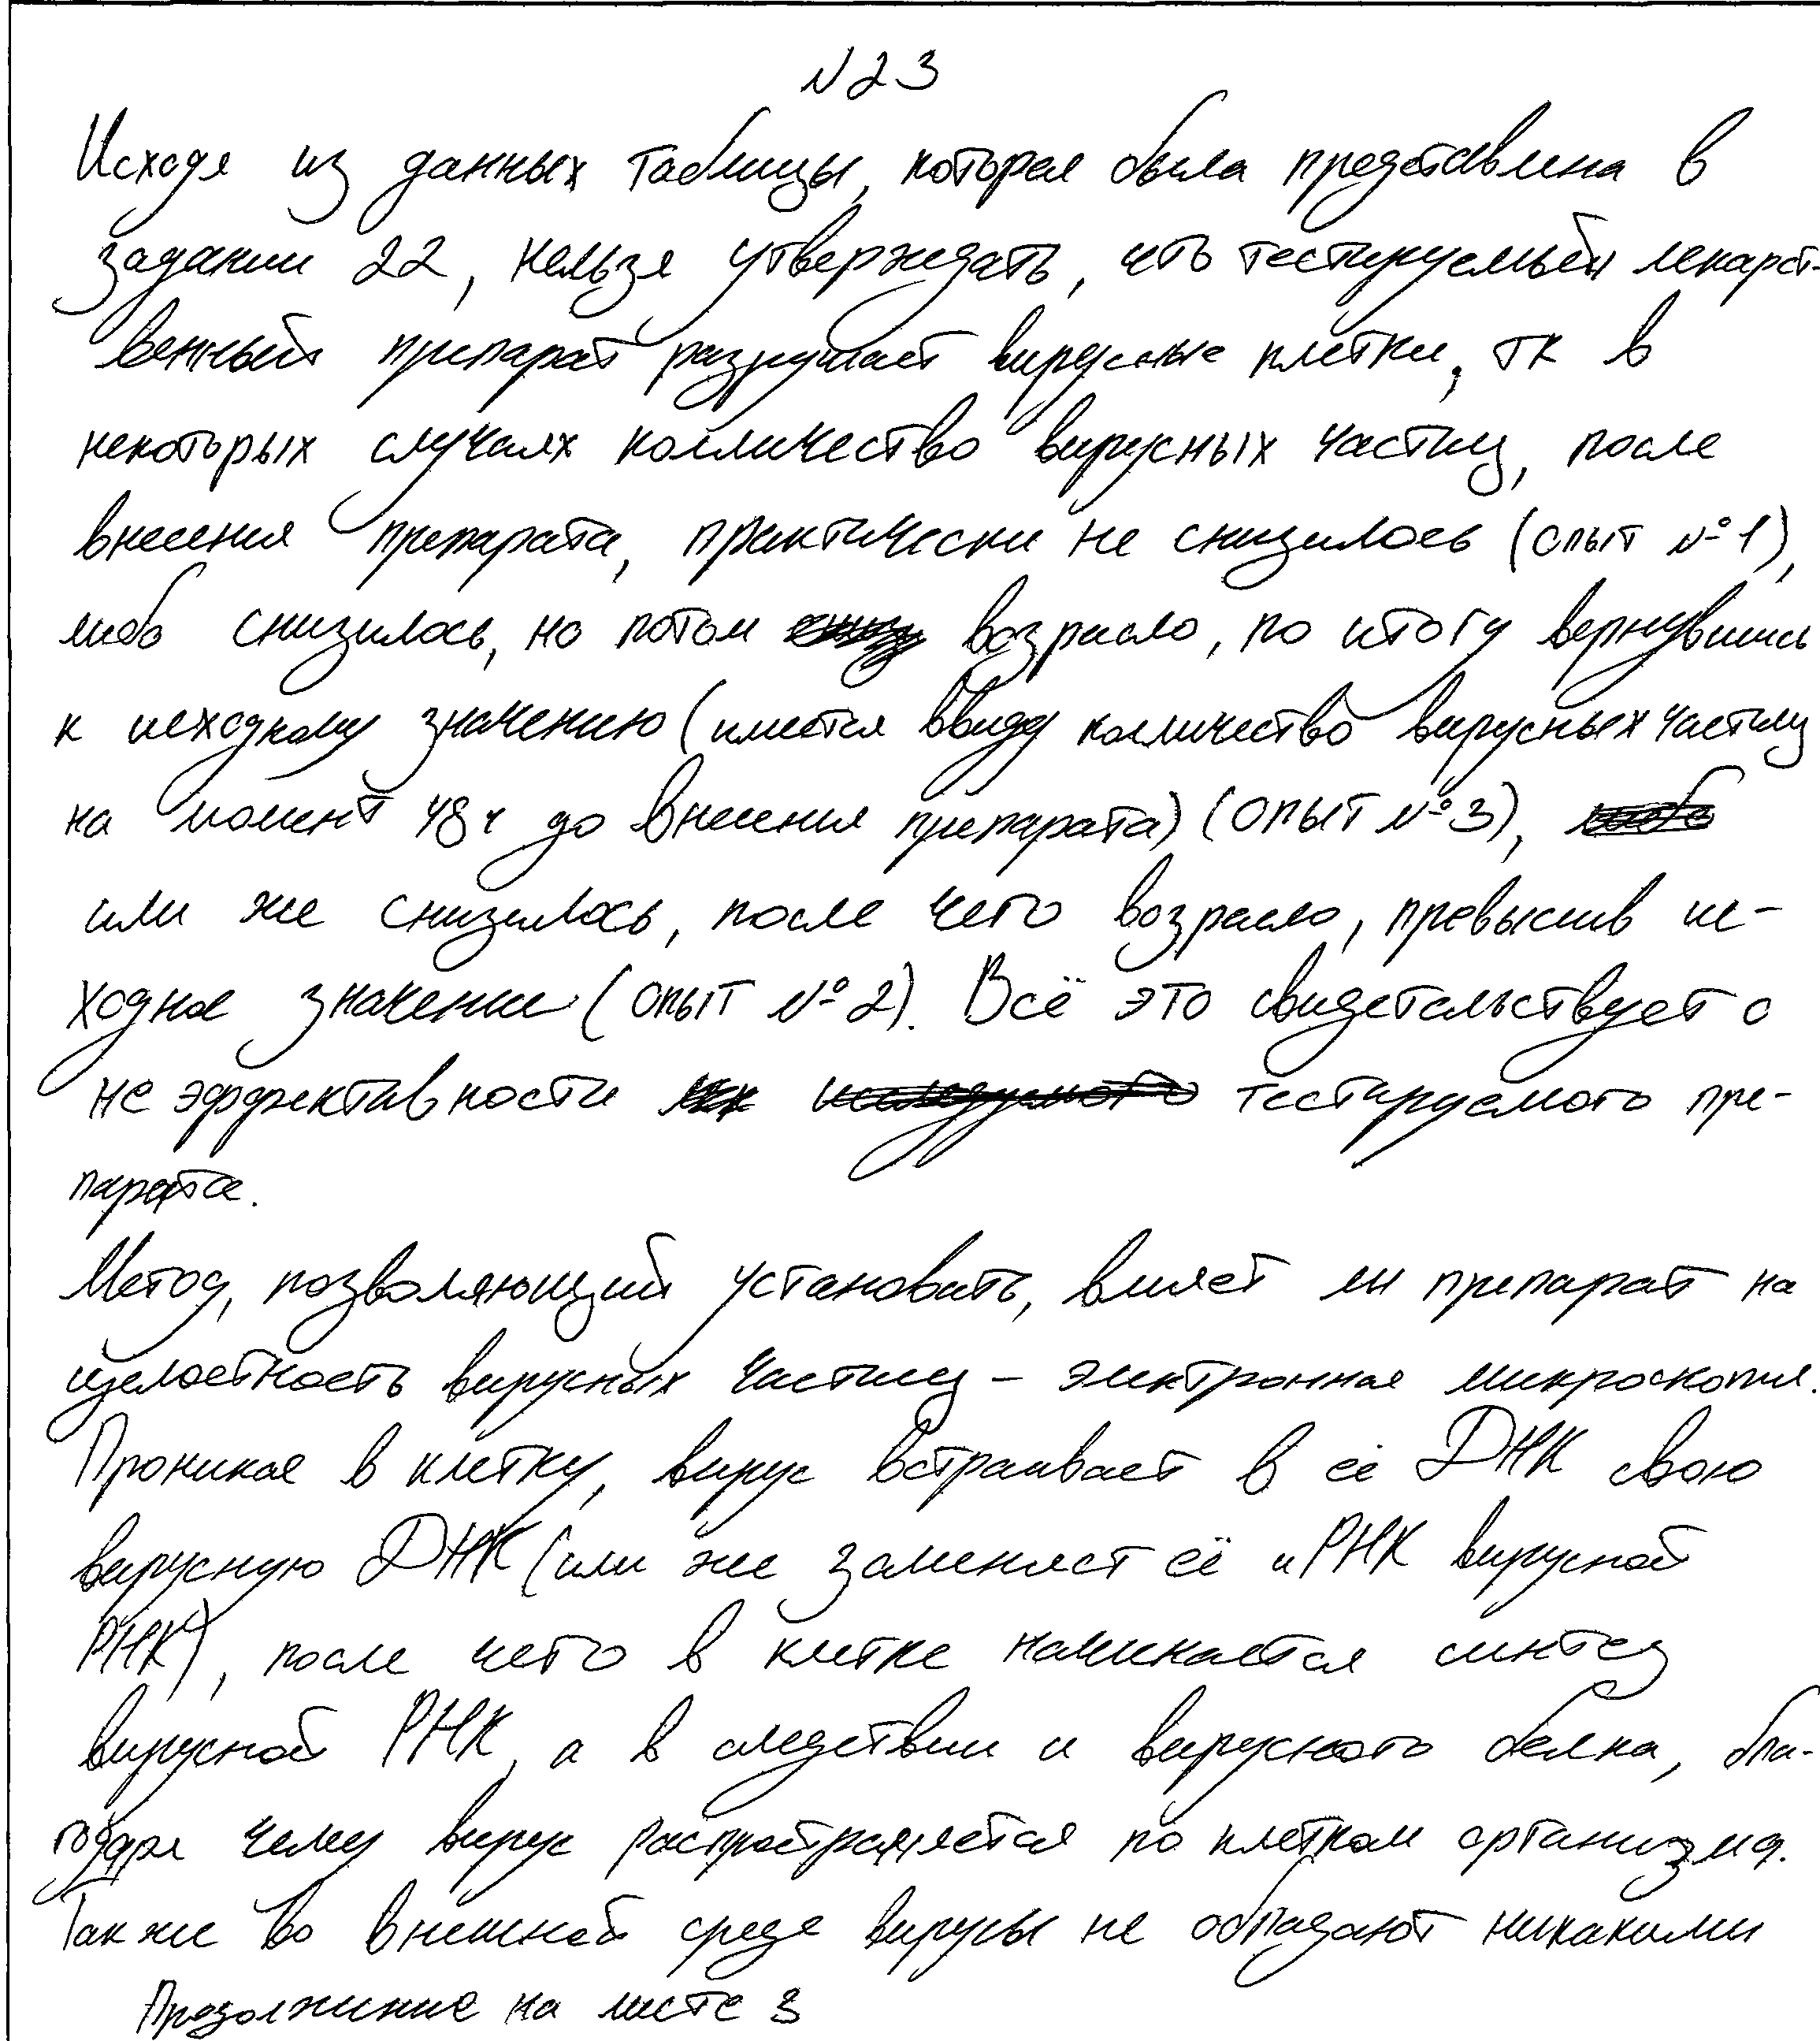 №23
Исходя из данных таблицы, которая была представлена в
задании 22, нельзя утверждать, что тестируемый лекарст-
венный препарат разрушает вирусные клетки, тк в
некоторых случаях колличество вирусных частиц, после
внесения препарата, практически не снизилось (опыт №1),
либо снизилось, но потом возрасло, по итогу вернувшись
к исходному значению (имеется ввиду колличество вирусных частиц
на момент 48ч до внесения препарата) (опыт №3),
или же снизилось, после чего возрасло, превысив ис-
ходное значение (опыт №2). Всё это свидетельствует о
не эффективности тестируемого пре-
парата.
Метод, позволяющий установить, влияет ли препарат на
целостность вирусных частиц – электронная микроскопия.
Проникая в клетку, вирус встраивает в её ДНК свою
вирусную ДНК (или же заменяет её иРНК вирусной
РНК), после чего в клетке начинается синтез
вирусной РНК, а в следствии и вирусного белка, бла-
годаря чему вирус распространяется по клеткам организма.
Также во внешней среде вирусы не обладают никакими
Продолжение на листе 3